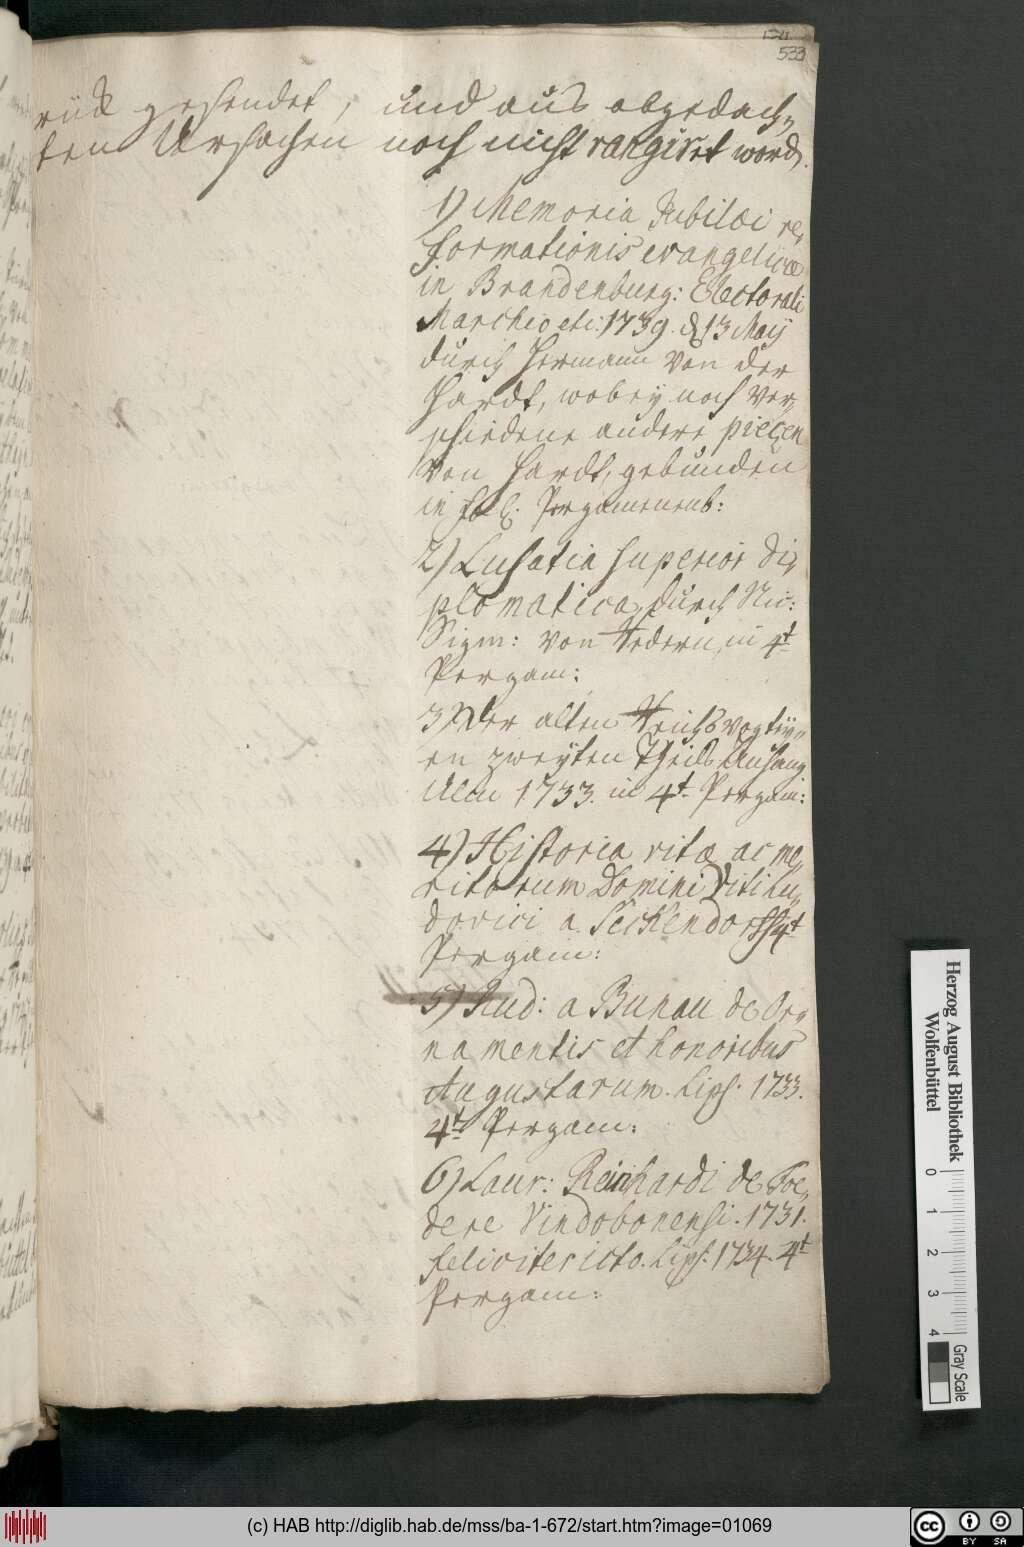 533
rük gesendet, und aus abgedach„
ten Ursachen noch nicht rangiret word.
1) Memoria Jubilæi re„
formationis evangelicæ
in Brandenburg: Electorali
Marchio etc: 1739. d 13 Maÿ
durch Hermann von der
Hardt, wobey noch ver„
schiedene andere pieçen
von Hardt, gebunden
in fol. Pergamenenb:
2) Lusatia superior di„
plomatica, durch Nic:
Sigm: von Redern, in 4t
Pergam:
3) Der alten Reichsvogteÿ„
en zweÿten Theils Anhang
Ulm 1733. in 4t Pergam:
4) Historia vitæ ac me„
ritorum Domini Viti Lu„
dovici a Seckendorff 4t
Pergam:
5) Rud: a Bunau de Or„
namentis et honoribus
Augustarum. Lips. 1733.
4t Pergam:
6) Laur: Reinhardi de Foe„
dere Vindobonensi. 1731.
feliciter icto. Lips. 1734. 4t
Pergam:
Herzog August Bibliothek
Wolfenbüttel
0 1 2 3 4
Gray Scale
(c) HAB http://diglib.hab.de/mss/ba-1-672/start.htm?image=01069
cc BY SA